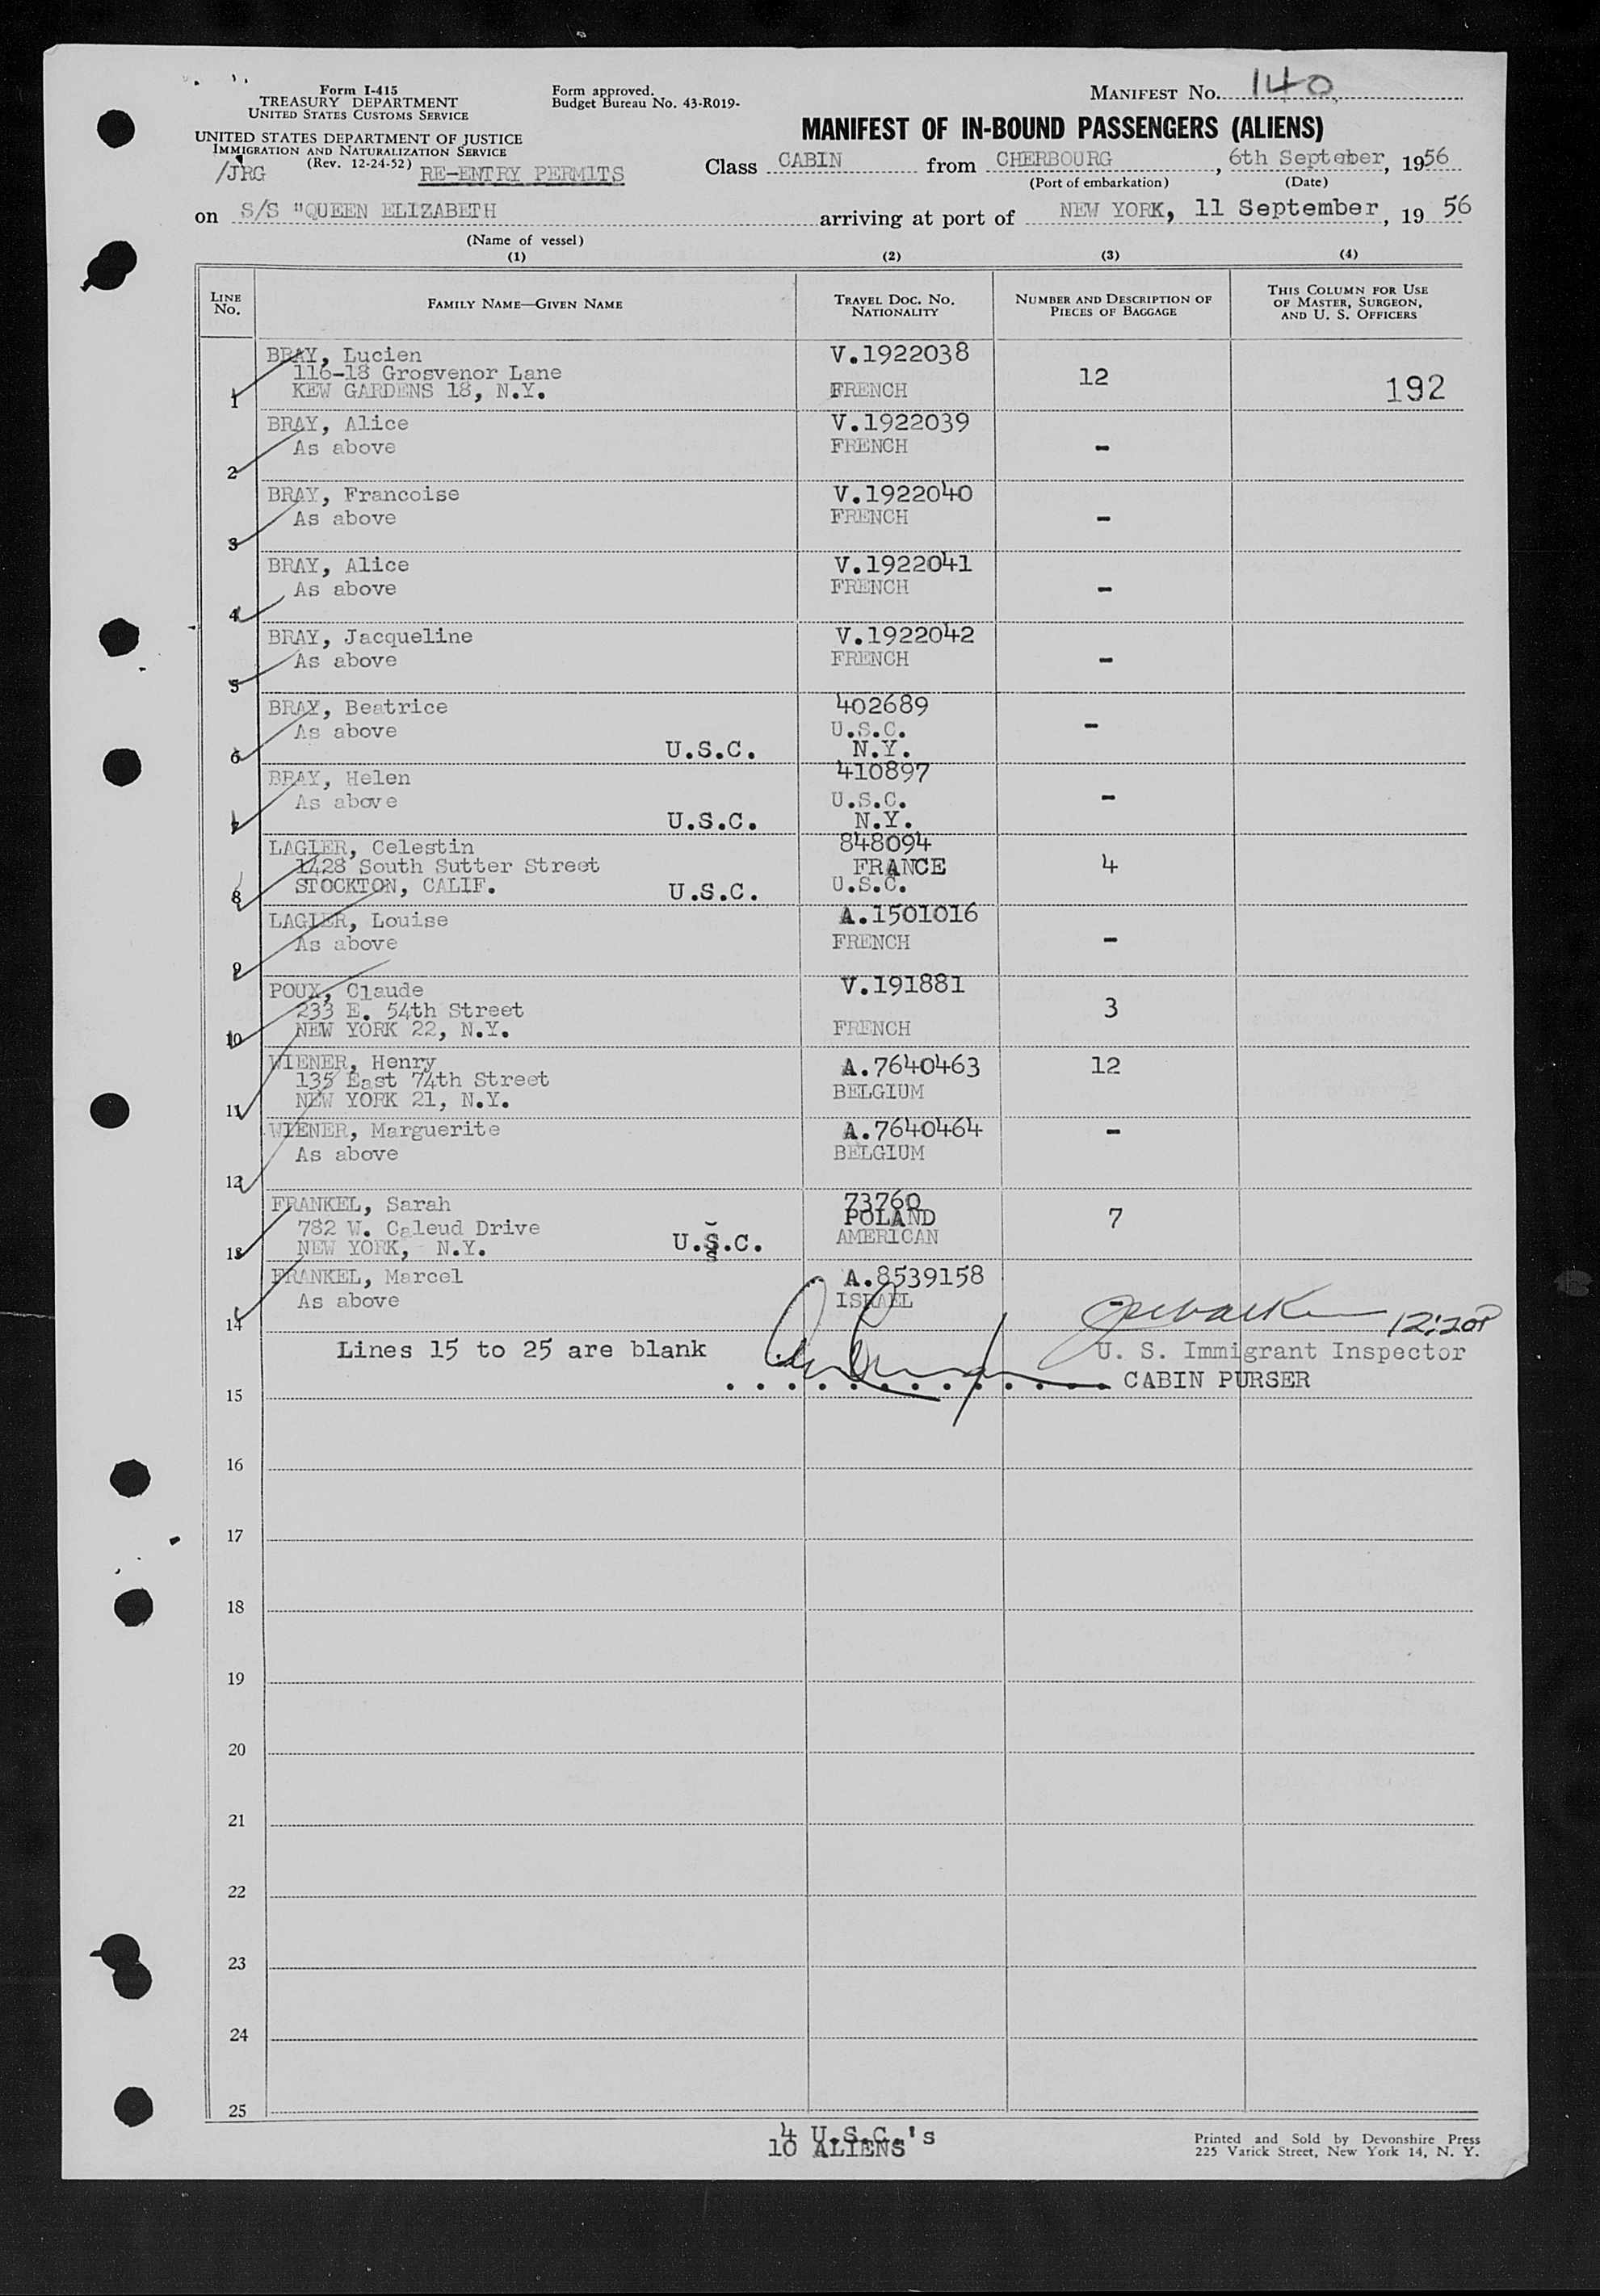 Form I-415
TREASURY DEPARTMENT
UNITED STATES CUSTOMS SERVICE
UNITED STATES DEPARTMENT OF JUSTICE
IMMIGRATION AND NATURALIZATION SERVICE
(Rev. 12-24-52)
/JRG RE-ENTRY PERMITS
Form approved.
Budget Bureau No. 43-R019-
MANIFEST NO. 140
MANIFEST OF IN-BOUND PASSENGERS (ALIENS)
Class CABIN from CHERBOURG, 6th Septober, 1956
(Port of embarkation) (Date)
on S/S "QUEEN ELIZABETH arriving at port of NEW YORK, 11 September, 19 56
(Name of vessel)
(1) (2) (3) (4)
LINE NO. FAMILY NAME—GIVEN NAME TRAVEL DOC. NO. NATIONALITY NUMBER AND DESCRIPTION OF PIECES OF BAGGAGE THIS COLUMN FOR USE OF MASTER, SURGEON, AND U. S. OFFICERS
BRAY, Lucien V.1922038
116-18 Grosvenor Lane 12
1 KEW GARDENS 18, N.Y. FRENCH 192
BRAY, Alice V.1922039
As above FRENCH -
2
BRAY, Francoise V.1922040
As above FRENCH -
3
BRAY, Alice V.1922041
As above FRENCH -
4
BRAY, Jacqueline V.1922042
As above FRENCH -
5
BRAY, Beatrice 402689
As above U.S.C. -
6 U.S.C. N.Y.
BRAY, Helen 410897
As above U.S.C. -
7 U.S.C. N.Y.
LAGIER, Celestin 848094
1428 South Sutter Street FRANCE 4
8 STOCKTON, CALIF. U.S.C. U.S.C.
LAGIER, Louise A.1501016
As above FRENCH -
9
POUX, Claude V.191881
233 E. 54th Street 3
10 NEW YORK 22, N.Y. FRENCH
WIENER, Henry A.7640463 12
135 East 74th Street BELGIUM
11 NEW YORK 21, N.Y.
WIENER, Marguerite A.7640464 -
As above BELGIUM
12
FRANKEL, Sarah 73760
782 W. Caleud Drive POLAND 7
13 NEW YORK, N.Y. U.S.C. AMERICAN
FRANKEL, Marcel A.8539158
As above ISRAEL -
14 12:20P
Lines 15 to 25 are blank U. S. Immigrant Inspector
............. CABIN PURSER
15
16
17
18
19
20
21
22
23
24
25
4 U.S.C.'s
10 ALIENS's
Printed and Sold by Devonshire Press
225 Varick Street, New York 14, N. Y.